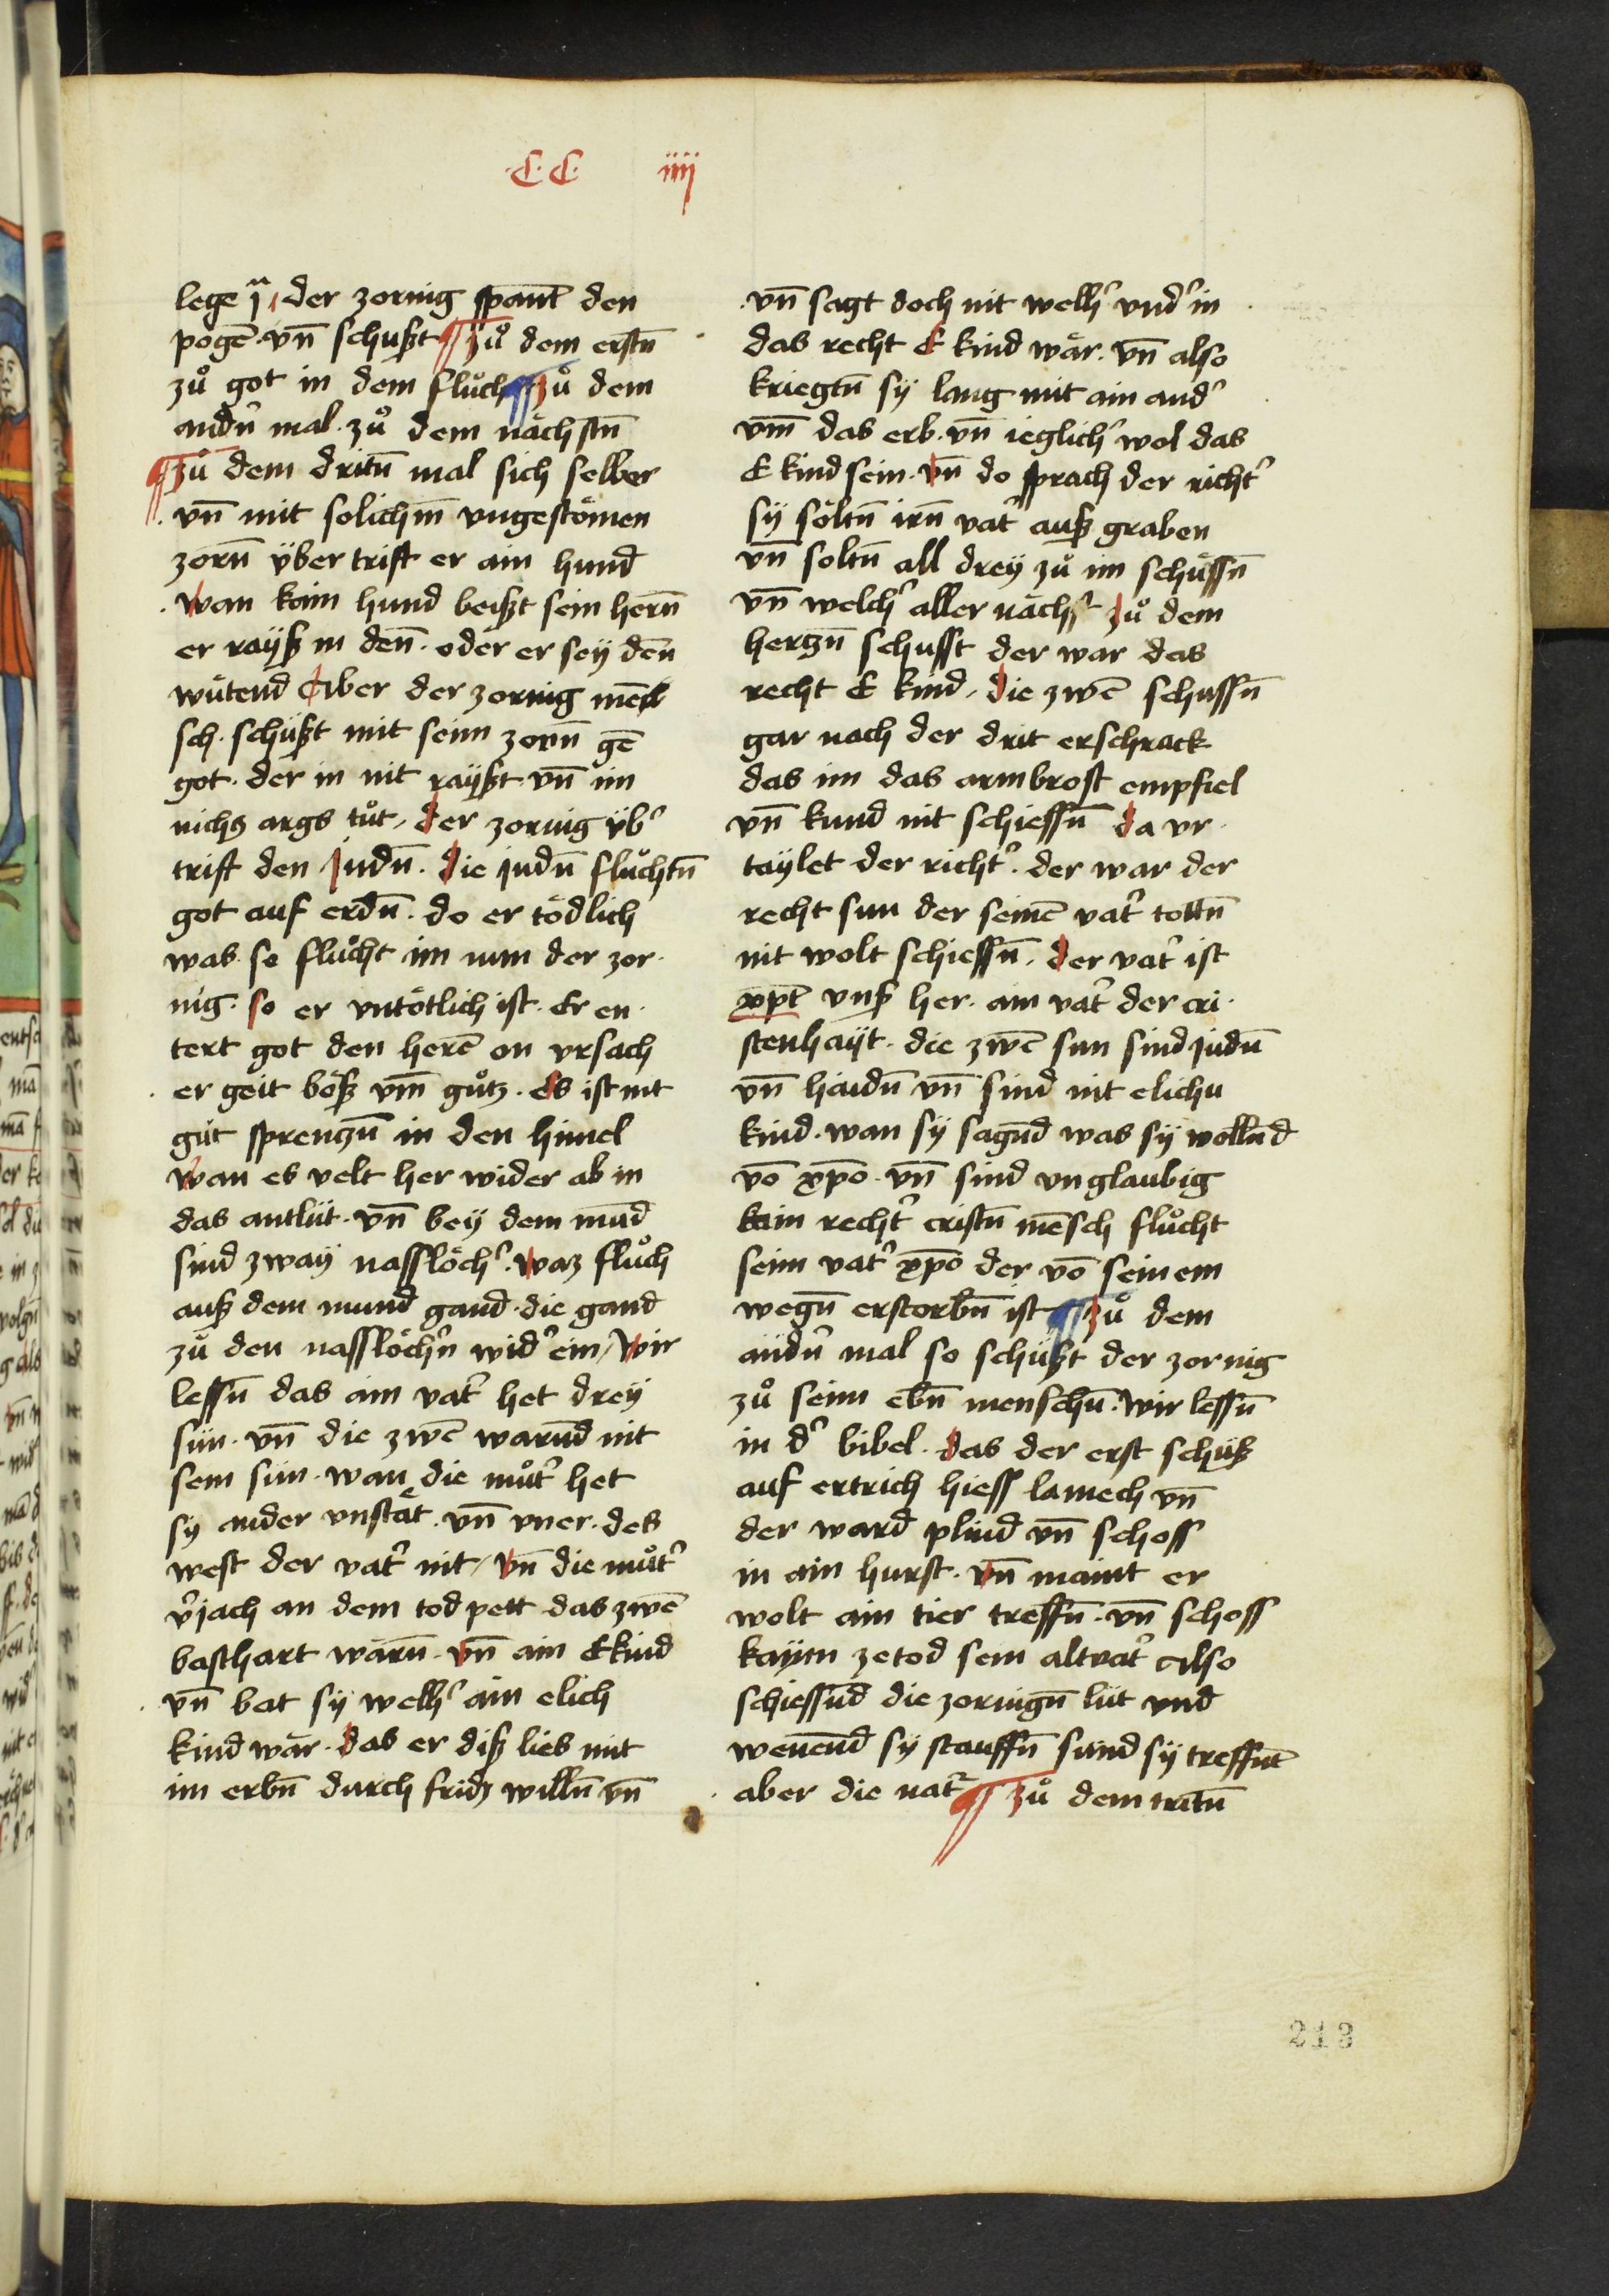 ·C·C· iiij
lege ȷ̈ · der zornig spant den
pogē · vn̄ schußt ¶ zů dem erstn̄
zů got in dem flůch ¶ zů dem
andn̄ mal · zů dem nächstn̄
¶ zů dem dritn̄ mal sich selber
vn̄ mit solichm̄ vngestömen
zorn̄ über trift er ain hund
wan kain hund beißt sein hern̄
er rayß in den̄ · oder er sey den̄
wütend Aber der zornig men̄
sch · schüßt mit seim zorn̄ gē
got · der in nit rayßt vn̄ im
nichs args tůt, der zornig übʾ
trift den Judn̄ · die Judn̄ flůchtn̄
got auf erdn̄ · do er tödlich
was · so flůcht im nun der zor
nig · so er vntötlich ist · Er en
tert got den herē on vrsach
er geit böß vm̄ gůtz · Es ist nit
gůt sprenzn̄ in den himel
wan es velt her wider ab in
das antlüt · vn̄ bey dem mūd
sind zway naßlöchʾ · waz flůch
auß dem mund gand · die gand
zů den naßlöchn̄ widʾ ein, wir
lessn̄ das ain vatʾ het drey
sün · vn̄ die zwē warn̄d nit
sein sün · wan die můtʾ het
sy ander vnstät · vn̄ vner · des
west der vatʾ nit, vn̄ die můtʾ
v̄jach an dem tod pett das zwē
basthart wärn̄ · vn̄ ain Ekind
vn̄ bat sy welhʾ ain elich
kind wär · das er diß lies mit
im erbn̄ durch fridz willn̄ vn̄
vn̄ sagt doch nit welhʾ vndʾ in
das recht E kind wär · vn̄ also
kriegtn̄ sy lang mit ain andʾ
vm̄ das erb · vn̄ ieglichʾ wol das
E kind sein · vn̄ do sprach der richtʾ
sy söltn̄ irn̄ vatʾ auß graben
vn̄ soltn̄ all drey zů im schüssn̄
vn̄ welchʾ aller nächst zů dem
hertzn̄ schusst der war das
recht E kind, die zwē schussn̄
gar nach der drit erschrack
das im das armbrost empfiel
vn̄ kund nit schiessn̄ da vr
taylet der richtʾ · der war der
recht sun der seinē vatʾ tottn̄
nit wolt schiessn̄, der vatʾ ist
xp̄t vnß her · ain vatʾ der cri
stenhayt · die zwē sun sind judn̄
vn̄ haidn̄ vn̄ sind nit elichu
kind · wan sy sagn̄d was sy wolln̄d
vō xp̄o · vn̄ sind vnglaubig
kain rechtʾ cristn̄ mēsch flůcht
seim vatʾ xp̄o der vō seinem
wegn̄ erstorbn̄ ist ¶ zů dem
andn̄ mal so schüßt der zornig
zů seim ebn̄ menschn̄ · wir lessn̄
in dʾ bibel · das der erst schüß
auf ertrich hiess lamech vn̄
der ward plind vn̄ schoss
in ain hurst · vn̄ maint er
wolt ain tier treffn̄ · vn̄ schoss
kaym ze tod sein altvatʾ Also
schiessn̄d die zornign̄ lüt vnd
wenen̄d sy stauffn̄ sünd sy treffn̄t
aber die natʾ ¶ zů dem tritn̄
213